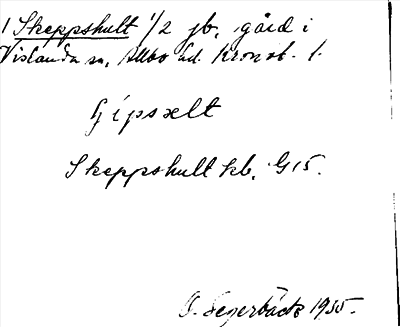 1 Skeppshult 1/2 jb. gård i
Vislanda sn, Allbo hd. Kronob. l.
Skeppshult kb. G15.
O. Segerbäck 1935.